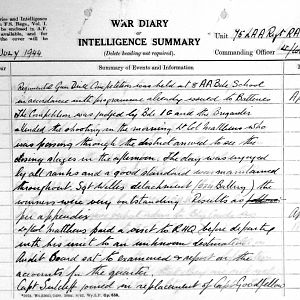 ries and Intelligence
F.S. Regs., Vol. I
be used in A.F.
available, and for
the cover will be
to
WAR DIARY
or
INTELLIGENCE SUMMARY
(Delete heading not required).
Unit 75 LAA Rgt RA
Commanding Officer Lt/
JULY 1944
Summary of Events and Information
Regimental Gun Drill Competition was held at 8 AA Bde School
in accordance with programme already issued to Batteries
The Competition was judged by Bde IG and the Brigadier
attended the shooting in the morning Lt Col Matthews who
was passing through the district arrived to see the
closing stages in the afternoon. The day was enjoyed
by all ranks and a good standard was maintained
throughout. Sgt Wells detachment ( Battery) the
winners were very outstanding. Results as
per appendix
Lt/Col Matthews paid a visit to RHQ before departing
with his unit to an unknown destination
Audit Board sat to examine & report on the
accounts for the quarter.
Capt joined in replacement of Capt Goodfellow